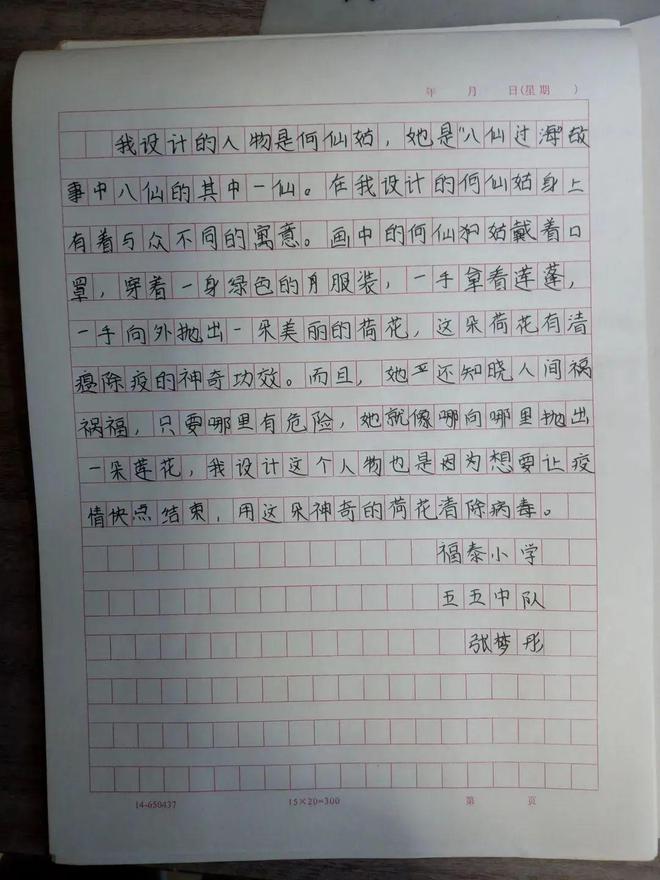 年 月 日(星期 )
我设计的人物是何仙姑，她是"八仙过海"故
事中八仙的其中一仙。在我设计的何仙姑身上
有着与众不同的寓意。画中的何仙姑戴着口
罩，穿着一身绿色的服装，一手拿着莲蓬，
一手向外抛出一朵美丽的荷花，这朵荷花有清
除疫的神奇功效。而且，她还知晓人间祸
祸福，只要哪里有危险，她就像哪向哪里抛出
一朵莲花，我设计这个人物也是因为想要让疫
情快点结束，用这朵神奇的荷花清除病毒。
福泰小学
五五中队
张梦彤
14-650437 15×20=300 第 页